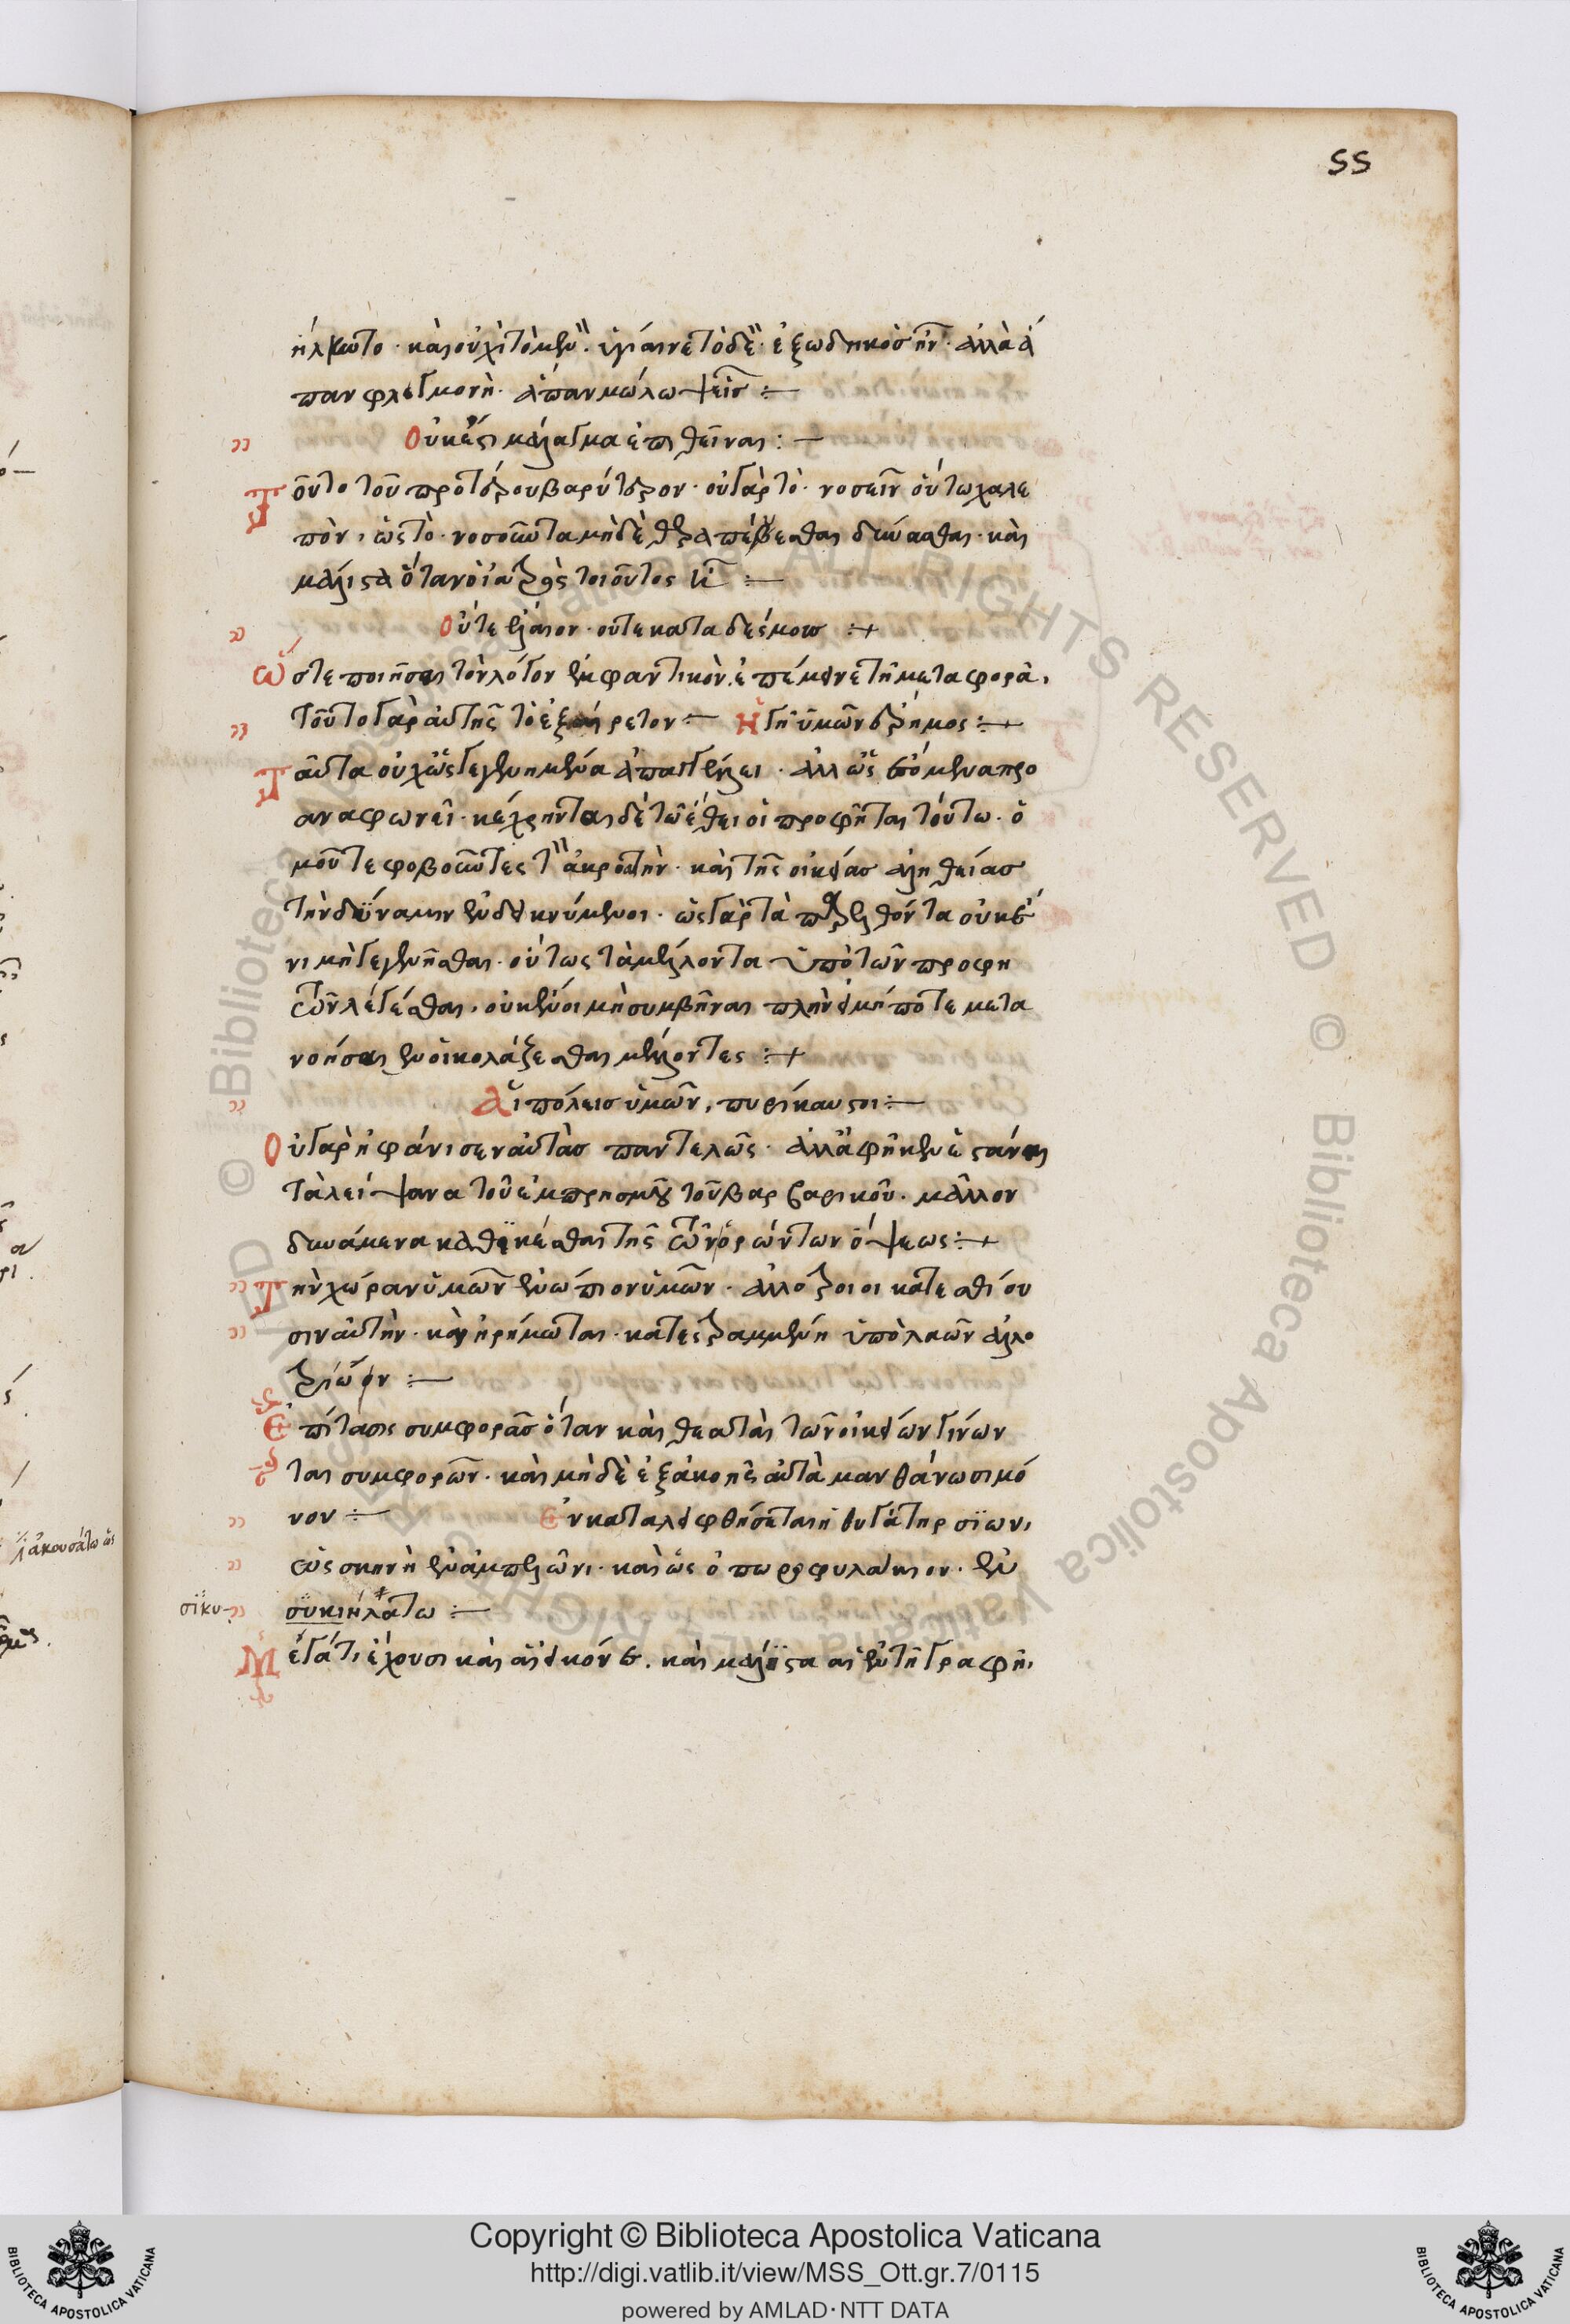 55
ἥλκωτο· καὶ οὐχὶ τὸ μὲν ὑγίαινε τὸ δὲ ἐξωδηκὸς ἦν· ἀλλὰ ἅ
παν φλεγμονὴ· ἅπαν μώλωψ εἷς :—
Οὐκ ἔστι μάλαγμα ἐπιθεῖναι :—
Τοῦτο τοῦ προτέρου βαρύτερον· οὐ γὰρ τὸ νοσεῖν οὕτω χαλε
πὸν, ὡς τὸ νοσοῦντα μηδὲ θεραπεύεσθαι δύνασθαι· καὶ
μάλιστα ὅταν ὁ ἰατρὸς τοιοῦτος ᾖ :—
Οὔτε ἔλαιον· οὔτε καταδέσμους :+
Ὥστε ποιῆσαι τὸν λόγον ἐμφαντικὸν, ἐπέμεινε τῇ μεταφορᾷ,
τοῦτο γὰρ αὐτῆς τὸ ἐξαίρετον :— Ἡ γῆ ὑμῶν ἔρημος :+
Ταῦτα οὐχ ὡς γεγενημένα ἀπαγγέλλει· ἀλλ' ὡς ἑπόμενα προ
αναφωνεῖ· κέχρηνται δὲ τῷ ἔθει οἱ προφῆται τούτῳ· ὁ
μοῦ τε φοβοῦντες τὸν ἀκροατὴν· καὶ τῆς οἰκείας ἀληθείας
τὴν δύναμιν ἐνδεικνύμενοι· ὡς γὰρ τὰ παρελθόντα οὐκ ἔ
νι μὴ γεγενῆσθαι· οὕτως τὰ μέλλοντα ὑπὸ τῶν προφη
τῶν λέγεσθαι, οὐκ ἔνι μὴ συμβῆναι πλὴν εἰ μήποτε μετα
νοήσαιεν οἱ κολάζεσθαι μέλλοντες :+
Αἱ πόλεις ὑμῶν, πυρίκαυστοι :—
Οὐ γὰρ ἠφάνισεν αὐτὰς παντελῶς· ἀλλ' ἀφῆκεν ἑστάναι
τὰ λείψανα τοῦ ἐμπρησμοῦ τοῦ βαρβαρικοῦ· μᾶλλον
δυνάμενα καθικέσθαι τῆς τῶν ὁρώντων ὄψεως :+
Τὴν χώραν ὑμῶν ἐνώπιον ὑμῶν· ἀλλότριοι κατεσθίου
σιν αὐτὴν· καὶ ἠρήμωται· κατεστραμμένη ὑπὸ λαῶν ἀλλο
τρίων :—
Ἐπίτασις συμφορᾶς ὅταν καὶ θεαταὶ τῶν οἰκείων γίνων
ται συμφορῶν· καὶ μηδὲ ἐξ ἀκοῆς αὐτὰ μανθάνωσι μό
νον :— Ἐνκαταλειφθήσεται ἡ θυγάτηρ σϊων,
ὡς σκηνὴ ἐν ἀμπελῶνι· καὶ ὡς ὀπωροφυλάκιον· ἐν
σϋκιηλάτω :—
σϊκυ
Μέγα τι ἔχουσι καὶ αἱ εἰκόνες· καὶ μάλιστα αἱ ἐν τῇ γραφῇ,
ἀκουσάτω ὡς
Copyright © Biblioteca Apostolica Vaticana
http://digi.vatlib.it/view/MSS_Ott.gr.7/0115
powered by AMLAD·NTT DATA
BIBLIOTECA APOSTOLICA VATICANA
BIBLIOTECA APOSTOLICA VATICANA